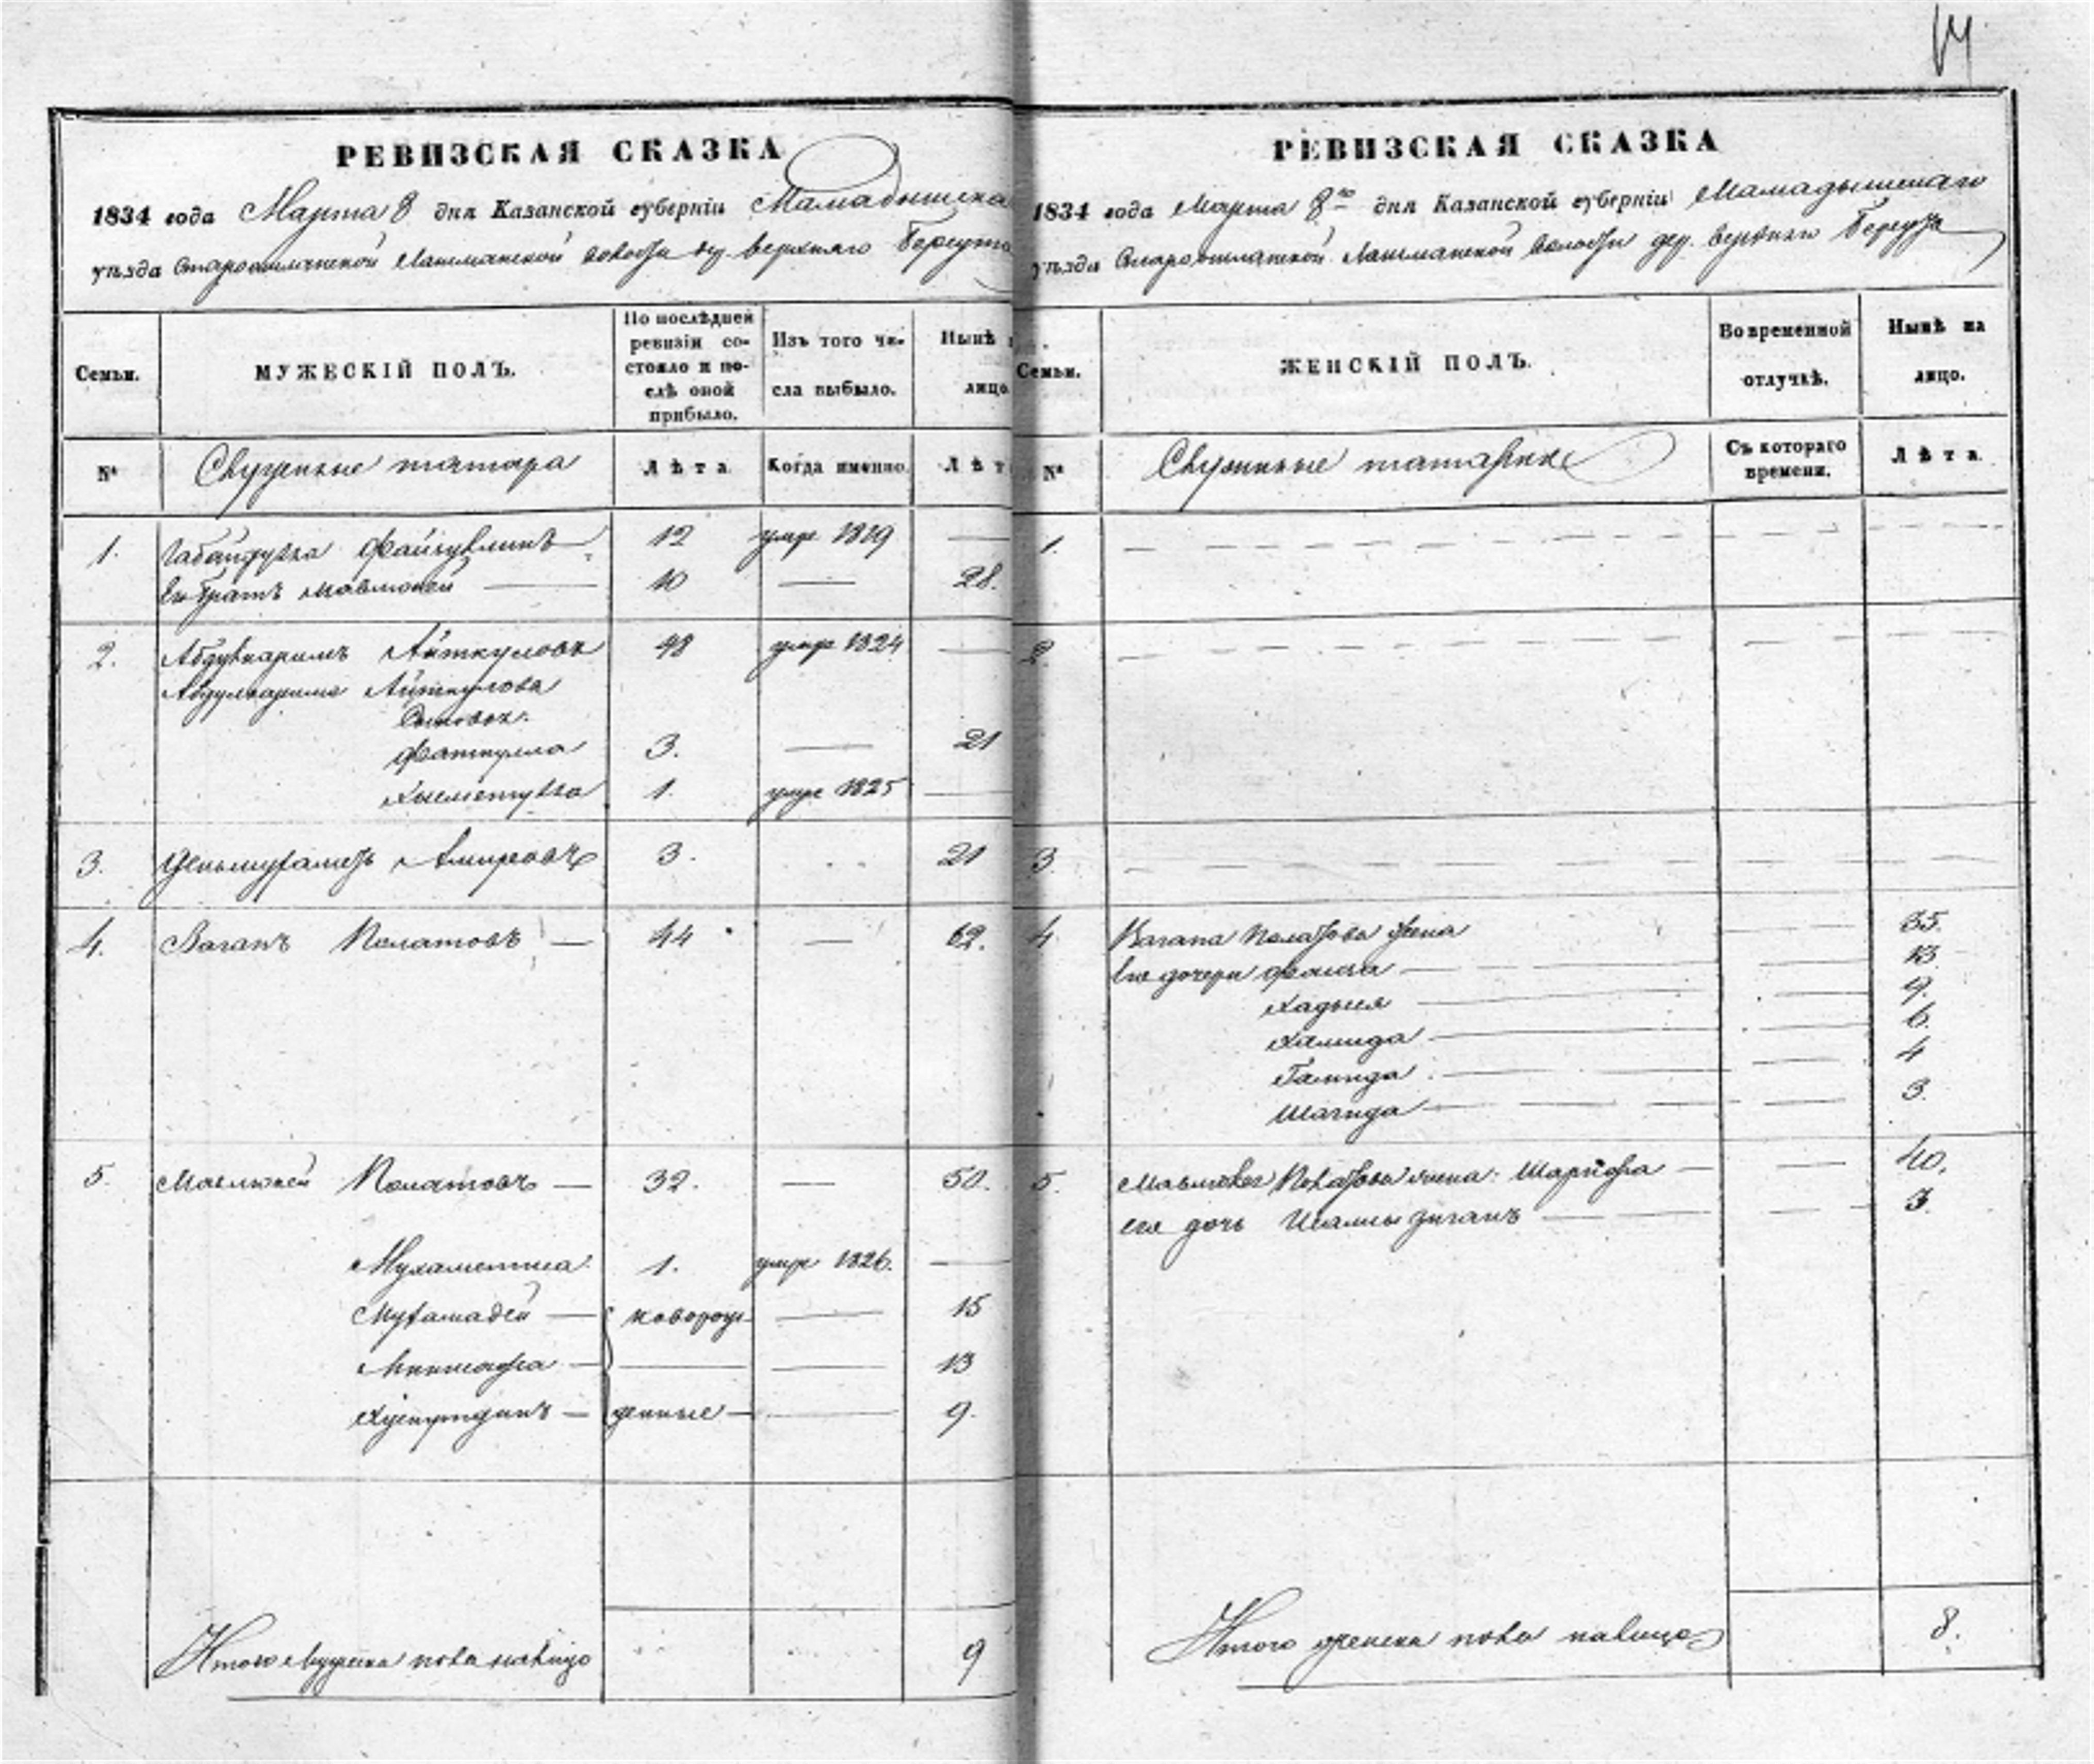 РЕВИЗСКАЯ СКАЗКА
1834 года Марта 8 дня Казанской губерніи Мамадышска
уѣзда Лашманской волости дер. Верхняго Берсута
Семьи.
МУЖЕСКІЙ ПОЛЪ.
По послѣдней ревизіи состояло и послѣ оной прибыло.
Изъ того числа выбыло.
Нынѣ
лицо.
№ Служилые татара Лѣта. Когда именно. Лѣт
1. Габайдулла Файзуллинъ 12 умре 1819 —
Его братъ Мавлюкей — 10 — 28.
2. Абдулкаримъ Айткуловъ 48 умре 1824 —
Абдулкарима Айткулова
Сыновья:
Фаткулла 3. — 21
Хисметулла 1. умре 1825 —
3. Амировъ 3. 21
4. Вагапъ Полатовъ — 44 — 62.
5. Мавлюкей Полатовъ — 32. — 50.
Мухаметша 1. умре 1826. —
Мухамадей — новорож — 15
Миншафа — — — 13
Хуснутдинъ — денные — — 9.
Итого мужеска пола налицо 9
14.
РЕВИЗСКАЯ СКАЗКА
1834 года Марта 8го дня Казанской губерніи Мамадышскаго
уѣзда Лашманской волости дер. Верхняго Берсута
Семьи.
ЖЕНСКІЙ ПОЛЪ.
Во временной отлучкѣ.
Нынѣ на лицо.
№ Служилые татарки Съ котораго времени. Лѣта.
1.
2.
3.
4. Вагапа Полатова жена — 35.
Его дочери Фаиза — — 13
Хадыся — — 9.
Хамида — — 6.
Гамида — — 4
Шагида — — 3.
5. Мавлюкея Полатова жена: — — 40.
его дочь — — 3.
Итого женска пола налицо 8.